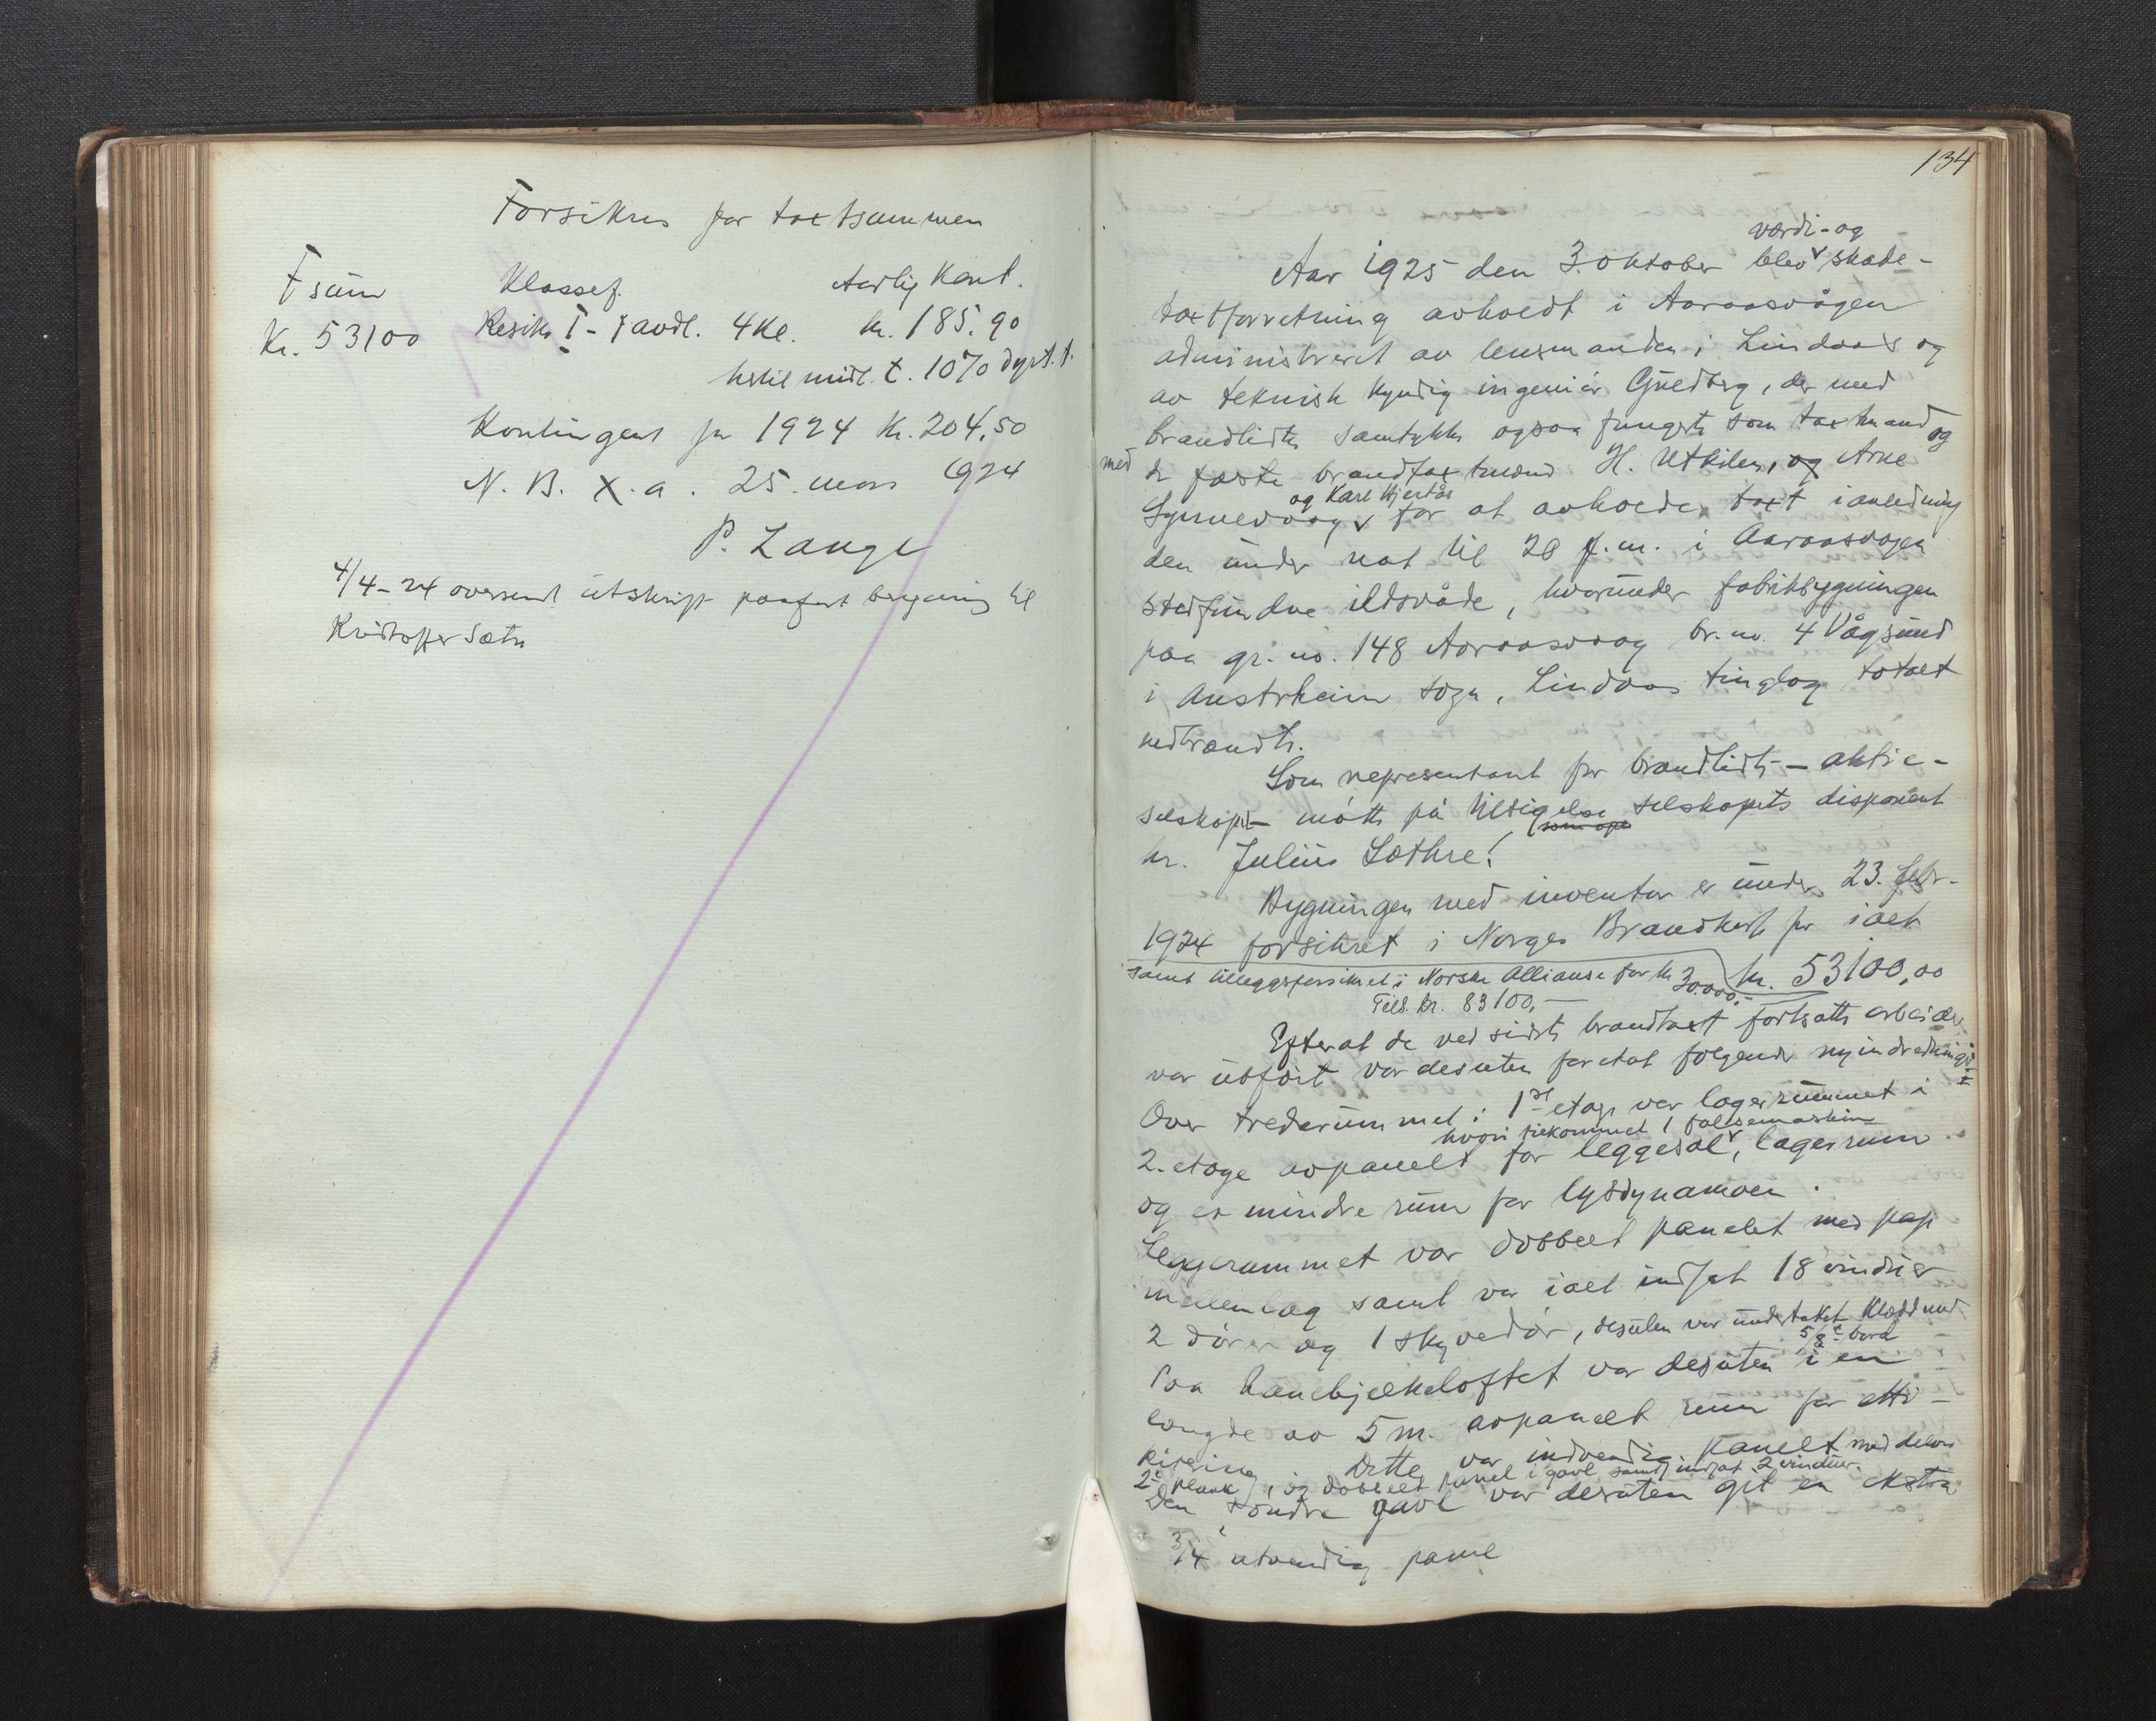 Forsikres for taxtsummen
F sum Klassef. Aarlig Kont.
Kr. 53100 Resiko I - f avdl. 4 Kl. kr. 185.90
t. 10% dyrt.t.
Kontingent for 1924 Kr. 204,50
N. B. K. a. 25. mars 1924
P. Lange
4/4-24 oversendt utskrift paaført begjæring til
Kristoffer Sætre
134
værdi- og
Aar 1925 den 3. oktober blev skade-
taxtforretning avholdt i Aaraasvågen
administreret av lensmanden i Lindaas og
av teknisk kyndig ingeniør Guldberg, der med
brandlidtes samtykke ogsaa fungerte som taxtmand og
med de faste brandtaxtmænd H. Utkilen, og Arne
og Karl Hjertås
Synnevaag for at avholde taxt i anledning
den under nat til 28 f.m. i Aaraasvagen
stedfundne ildsvåde, hvorunder fabrikbygningen
paa gr. no. 148 Aaraasvaag br. no. 4 Vågsund
i Austrheim sogn, Lindaas tinglag totalt
nedbrændte.
Som representant for brandlidte - aktie-
selskapet - møtte på tilsigelse selskapets disponent
hr. Julius Sæthre.
Bygningen med inventar er under 23. febr.
1924 forsikret i Norges Brandkasse for ialt
kr. 53100,00
samt tilleggsforsikret i Norske Alliance for kr 30.000,-
Tils. kr. 83100,-
Efterat de ved sidste brandtaxt fortsatte arbeider
var utført var desuten foretat følgende nyindredninger:
Over trederummet i 1ste etage var lagerrummet i
hvori tilkommet 1 falsemaskin
2. etage avpanelt for leggesal, lagerrum
og et mindre rum for lysdynamoen.
Leggerummet var dobbelt panelet med pap
mellemlag samt var ialt indsat 18 vinduer
2 dører og 1 skyvedør, desuten var undertaket klædd med
5/8" bord
Paa hanebjelkeloftet var desuten i en
længde av 5 m. avpanelt rum for etti-
kitering, Dette var indvendig panelt med delvis
2" plank, og dobbelt panel i gavl samt indsat 2 vinduer.
Den søndre gavl var desuten git en ekstra
3/4" utvendig panel